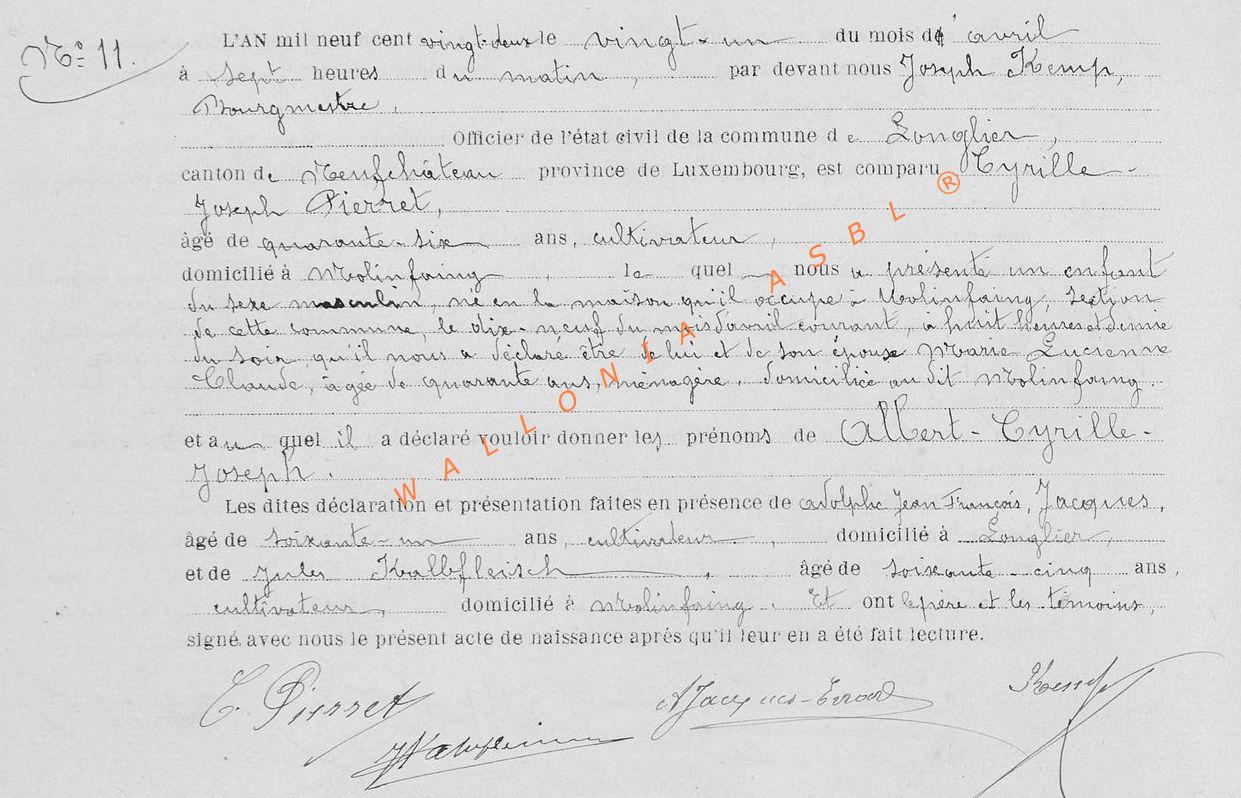 N° 11.
L'AN mil neuf cent vingt-deux le vingt-un du mois d' avril
à sept heures du matin, par devant nous Joseph Kemp,
Bourgmestre,
Officier de l'état civil de la commune de Longlier,
canton de Neufchâteau province de Luxembourg, est comparu Cyrille-
Joseph Pierret,
âgé de quarante-six ans, cultivateur,
domicilié à Molinfaing, le quel nous a présenté un enfant
du sexe masculin, né en la maison qu'il occupe à Molinfaing, section
de cette commune, le dix-neuf du mois d'avril courant, à huit heures et demie
du soir, qu'il nous a déclaré être de lui et de son épouse Marie Lucienne
Claude, âgée de quarante ans, ménagère, domiciliée au dit Molinfaing.
et au quel il a déclaré vouloir donner les prénoms de Albert-Cyrille-
Joseph.
Les dites déclaration et présentation faites en présence de Adolphe Jean François, Jacques,
âgé de soixante-un ans, cultivateur, domicilié à Longlier,
et de Jules Kalbfleisch, âgé de soixante-cinq ans,
cultivateur, domicilié à Molinfaing. Et ont le père et les témoins,
signé avec nous le présent acte de naissance après qu'il leur en a été fait lecture.
C. Pierret
A Jacques-Evrard
Kemp
WALLONIA ASBL ®